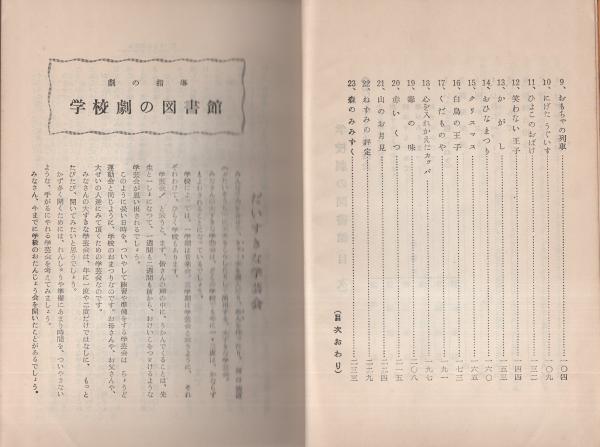 9、おもちゃの列車……一〇四
10、にげたうぐいす……一〇九
11、ひよこのおばけ……一三二
12、笑わない王子……一四四
13、かかし……一五三
14、おひなまつり……一六〇
15、クリスマス……一六五
16、白鳥の王子……一七三
17、くだものや……一九一
18、心を入れかえたカッパ……一九七
19、海の味……二〇八
20、赤いくつ……二一五
21、山のお月見……二二四
22、ねずみの評定……二二九
23、森のみみずく……二三三
(目次おわり)
劇の指導
学校劇の図書館
だいすきな学芸会
学校によっては、一学期は音楽会、二学期は学芸会と言うように、それ
ぞれわけて、ひらく学校もあります。
学芸会/と言うと、まず、皆さんの頭の中に、うかんでくることは、先
生と一しょになって、一週間も二週間も前から、おけいこをつづけるような
学芸会が思い出されるでしょう。
このように長い日時を、ついやして練習や準備をする学芸会は、ちょうど
運動会と同じように、学校のおまつりなのです。お母さんや、お父さんや、
大ぜいの人達にみて頂くための学芸会なのです。
みなさんの大すきな学芸会は、年に一度や二度だけではなしに、もっと
たびたび、開いてみたいと思うでしょう。
かず多く開くためには、れんしゅうや準備にあまり時間を、ついやさない
ような、手がるにやれる学芸会を考えてみましょう。
みなさん、今までに学校のおたんじょう会を開いたことがあるでしょう。